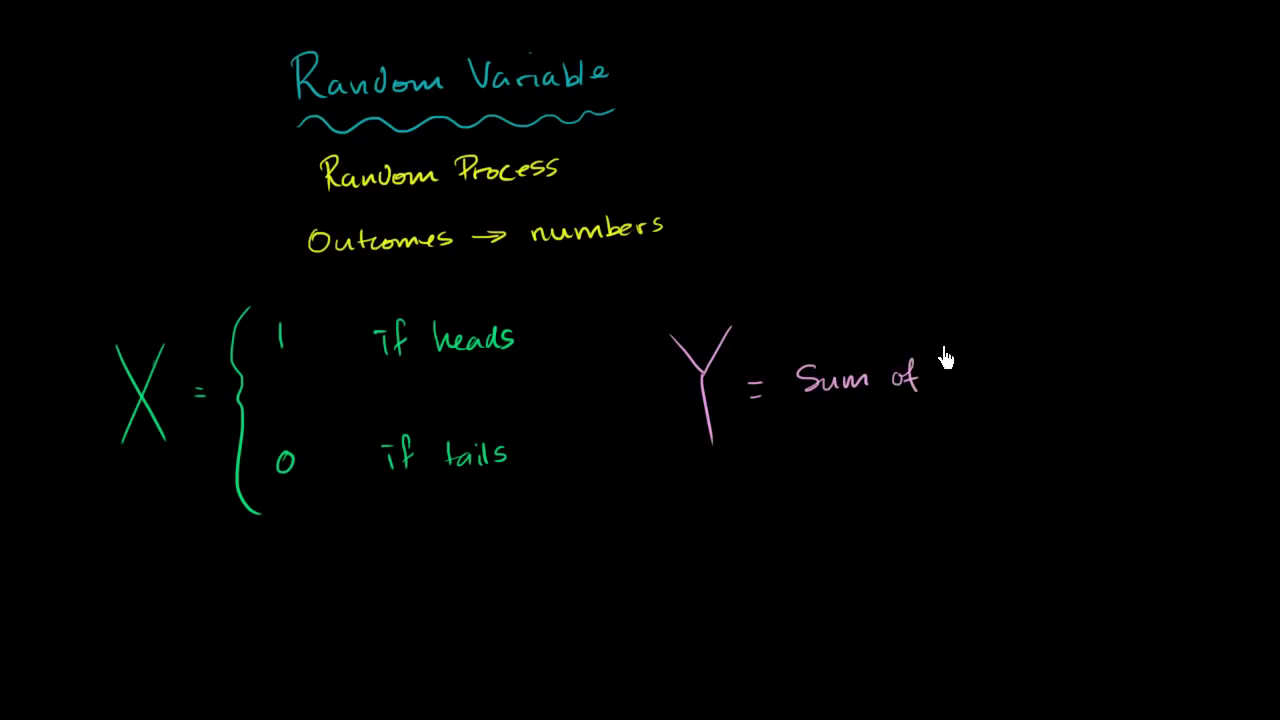 Random Variable
Random Process
Outcomes → numbers
X = { 1 if heads
0 if tails
Y = Sum of